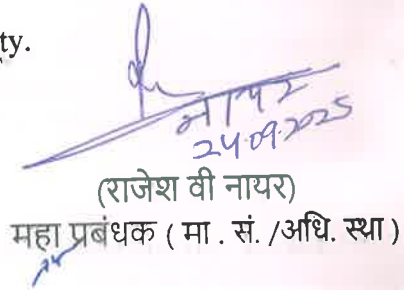 ty.
नायर
24.09.2025
(राजेश वी नायर)
महा प्रबंधक ( मा . सं. /अधि. स्था )